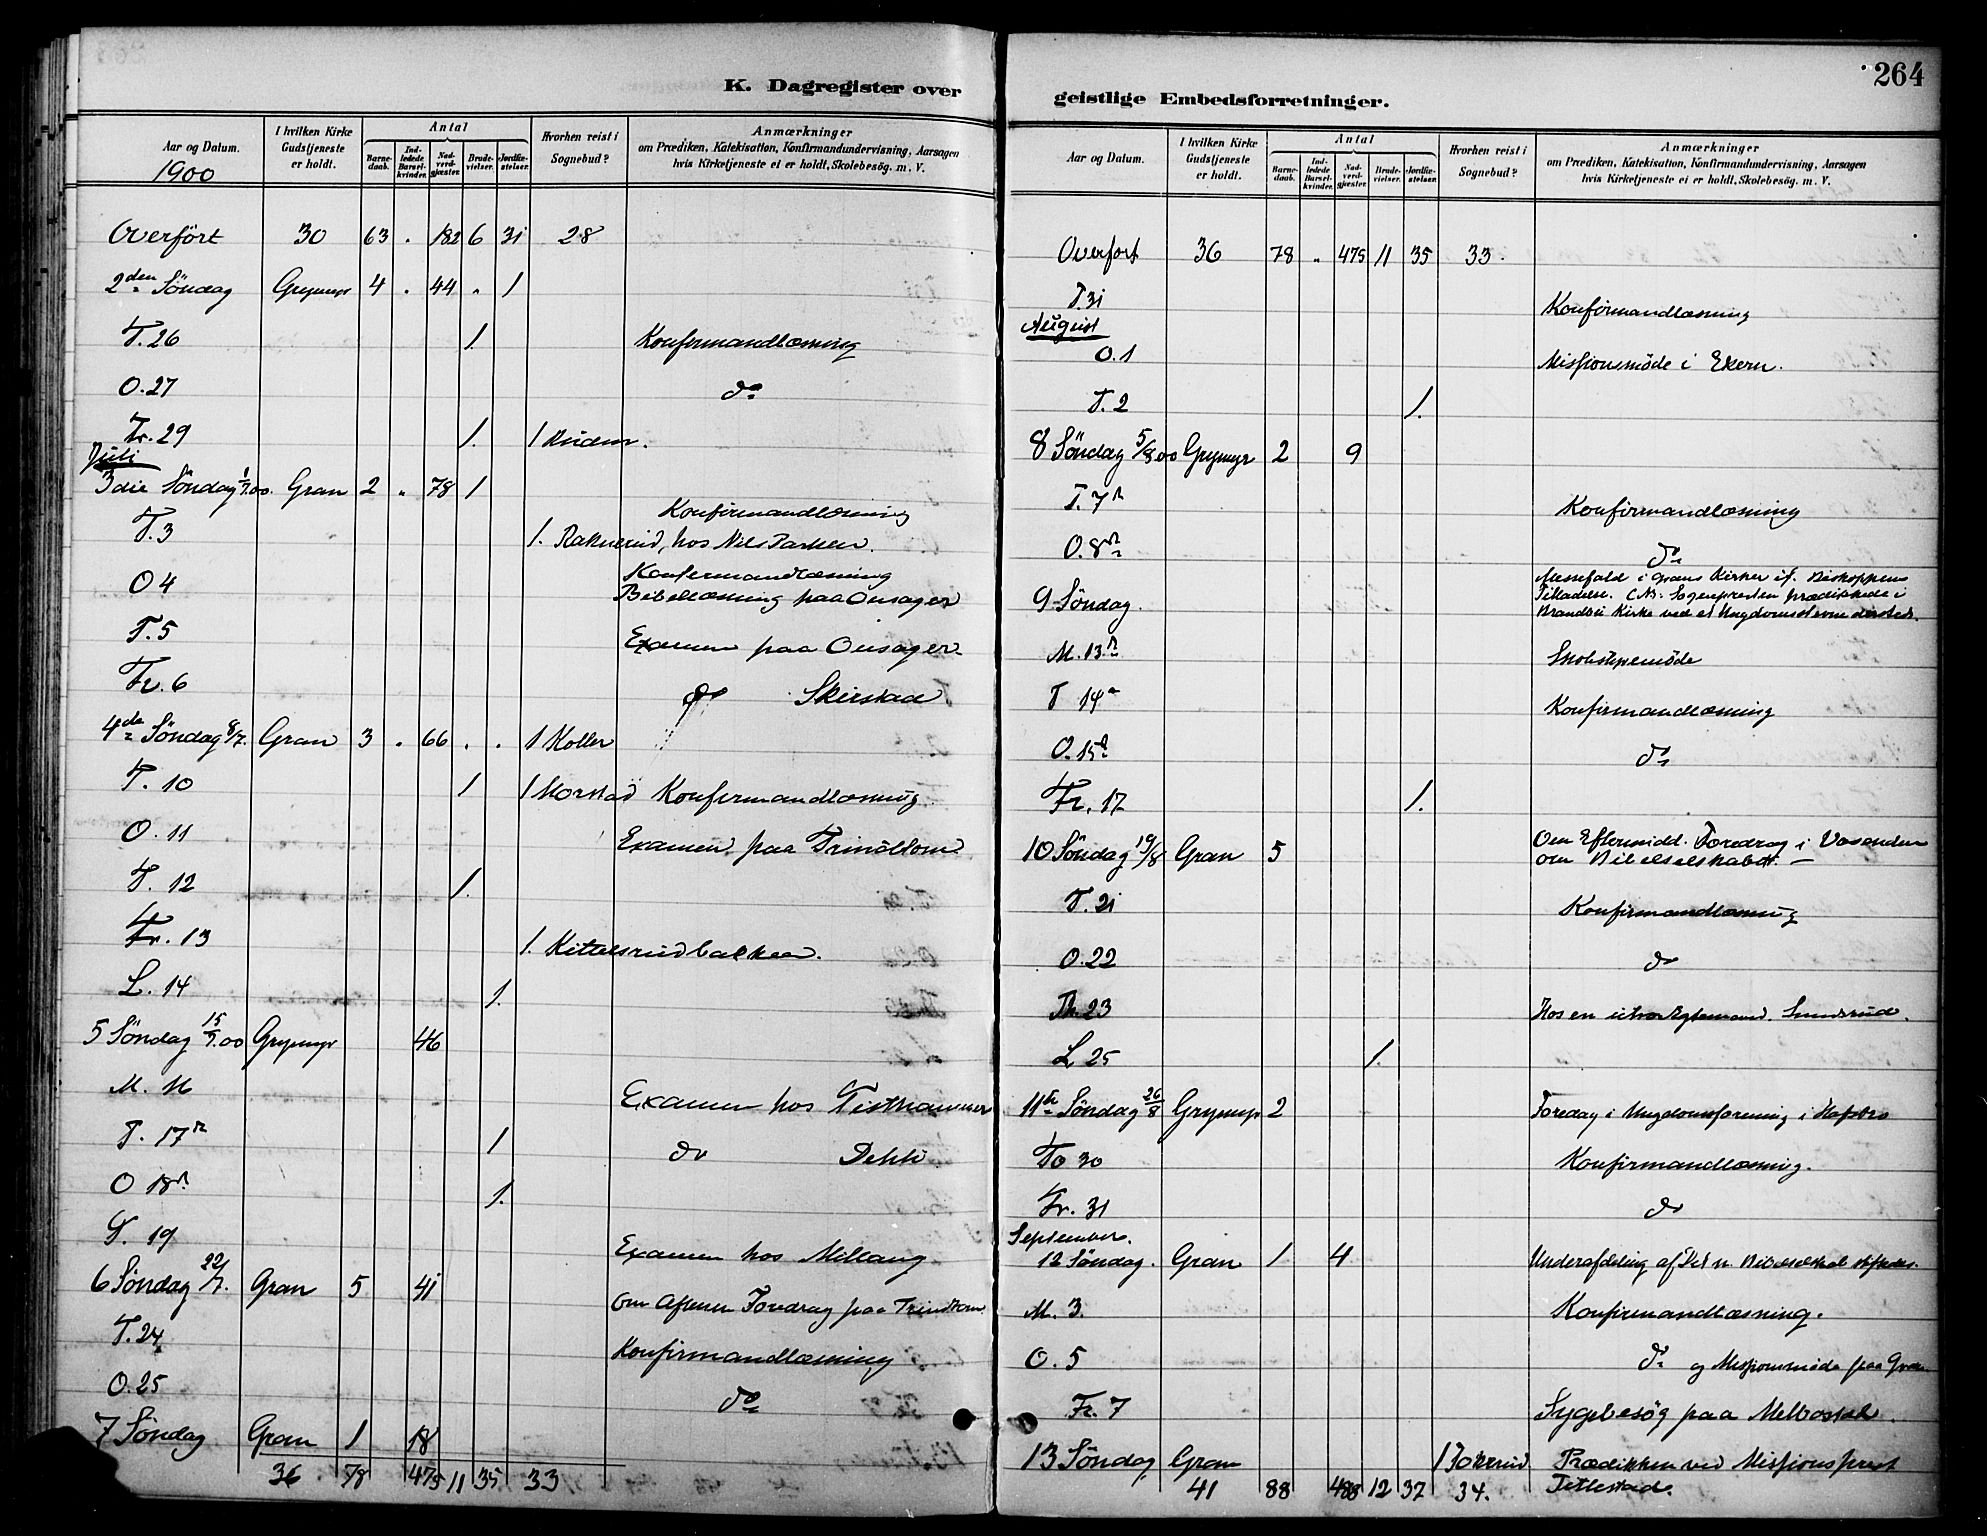 K. Dagregister over
Aar og Datum.
1900
I hvilken Kirke Gudstjeneste er holdt.
Antal
Barnedaab.
Indledede Barselkvinder.
Nadverdgjæster.
Brudevielser.
Jordfæstelser.
Hvorhen reist i Sognebud?
Anmærkninger
om Prædiken, Katekisation, Konfirmandundervisning, Aarsagen
hvis Kirketjeneste ei er holdt, Skolebesög. m. V.
Overført 30 63 . 182 6 31 28
2den Söndag Grymyr 4 . 44 . 1
T. 26 1. Konfirmandlæsning
O. 27 do
Fr. 29 1. 1
Juli
3die Söndag 1/7.00. Gran 2 . 78 1
Konfirmandlæsning
T. 3 1. Raknerud, hos Nils
O 4 Konfirmandlæsning
Bibellæsning paa Onsager
T. 5 Examen paa Onsager
Fr. 6 do Skirstad
4de Söndag 8/7. Gran 3 . 66 . . 1 Koller
T. 10 1 1 Morstad Konfirmandlæsning
O. 11 Examen paa
T. 12 1.
Fr. 13 1. Kittelsrudbakken.
L. 14 1.
5 Söndag 15/7.00 Grymyr 46
M. 16 Examen hos Tisthammer
T. 17n 1 do
O 18n 1.
T. 19 Examen hos
6 Söndag 22/7. Gran 5 41 Om Aftenen Foredrag paa
T. 24 Konfirmandlæsning
O. 25 do
7 Söndag Gran 1 18
36 78 475 11 35 33
264
geistlige Embedsforretninger.
Aar og Datum.
I hvilken Kirke Gudstjeneste er holdt.
Antal
Barnedaab.
Indledede Barselkvinder.
Nadverdgjæster.
Brudevielser.
Jordfæstelser.
Hvorhen reist i Sognebud?
Anmærkninger
om Prædiken, Katekisation, Konfirmandundervisning, Aarsagen
hvis Kirketjeneste ei er holdt, Skolebesög. m. V.
Overfört 36 78 . 475 11 35 33.
T. 31 Konfirmandlæsning
August
O. 1 Missionsmöde i Ekern.
T. 2 1.
8 Söndag 5/8.00 Grymyr 2 9
T. 7n Konfirmandlæsning
O. 8n do
Messefald i Grans Kirker if. Biskoppens
9 Söndag. Tilladelse. (NB. Sognepresten prædikede i
Brandbu Kirke ved et Ungdomsstevne dersteds.
M. 13n
T 14n Konfirmandlæsning
O. 15n do
Fr. 17 1.
10 Söndag 19/8 Gran 5 Om Eftermidd. Foredrag i Vasenden
om Bibelselskabet. —
T. 21 Konfirmandlæsning
O. 22 do
Th. 23 Hos en
L 25 1.
11te Söndag 26/8 Grymyr 2 Foredag i Ungdomsforening i
To 30 Konfirmandlæsning.
Fr. 31 do
September.
12 Söndag. Gran 1 4 Underafdeling af Det n. Bibelselskab stiftedes.
M. 3. Konfirmandlæsning.
O. 5 do og Missionsmöde paa
Fr. 7 Sygebesög paa
13 Söndag Gran 1 Prædiken ved Missionsprest
41 88 488 12 37 34. Titlestad.